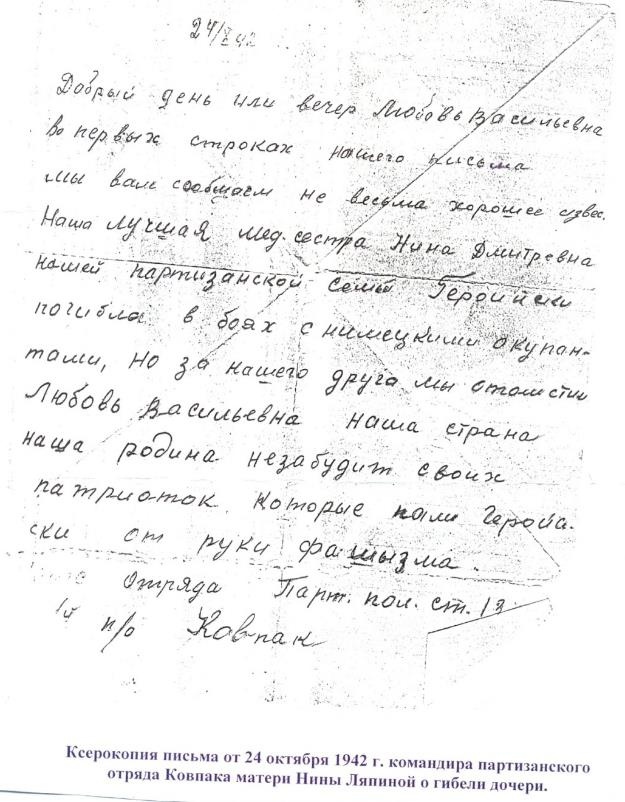 24/X 42
Добрый день или вечер Любовь Васильевна
Во первых строках нашего письма
мы вам сообщаем не весьма хорошее извес.
Наша лучшая мед. сестра Нина Дмитревна
нашей партизанской семьи Геройски
погибла в боях с нимецкими окупан-
тами, но за нашего друга мы отомстим
Любовь Васильевна наша страна
наша родина незабудит своих
патриоток. Которые пали Геройи-
ски от руки фашызма.
Отряда Парт. пол. ст. 13
п/о Ковпак
Ксерокопия письма от 24 октября 1942 г. командира партизанского
отряда Ковпака матери Нины Ляпиной о гибели дочери.